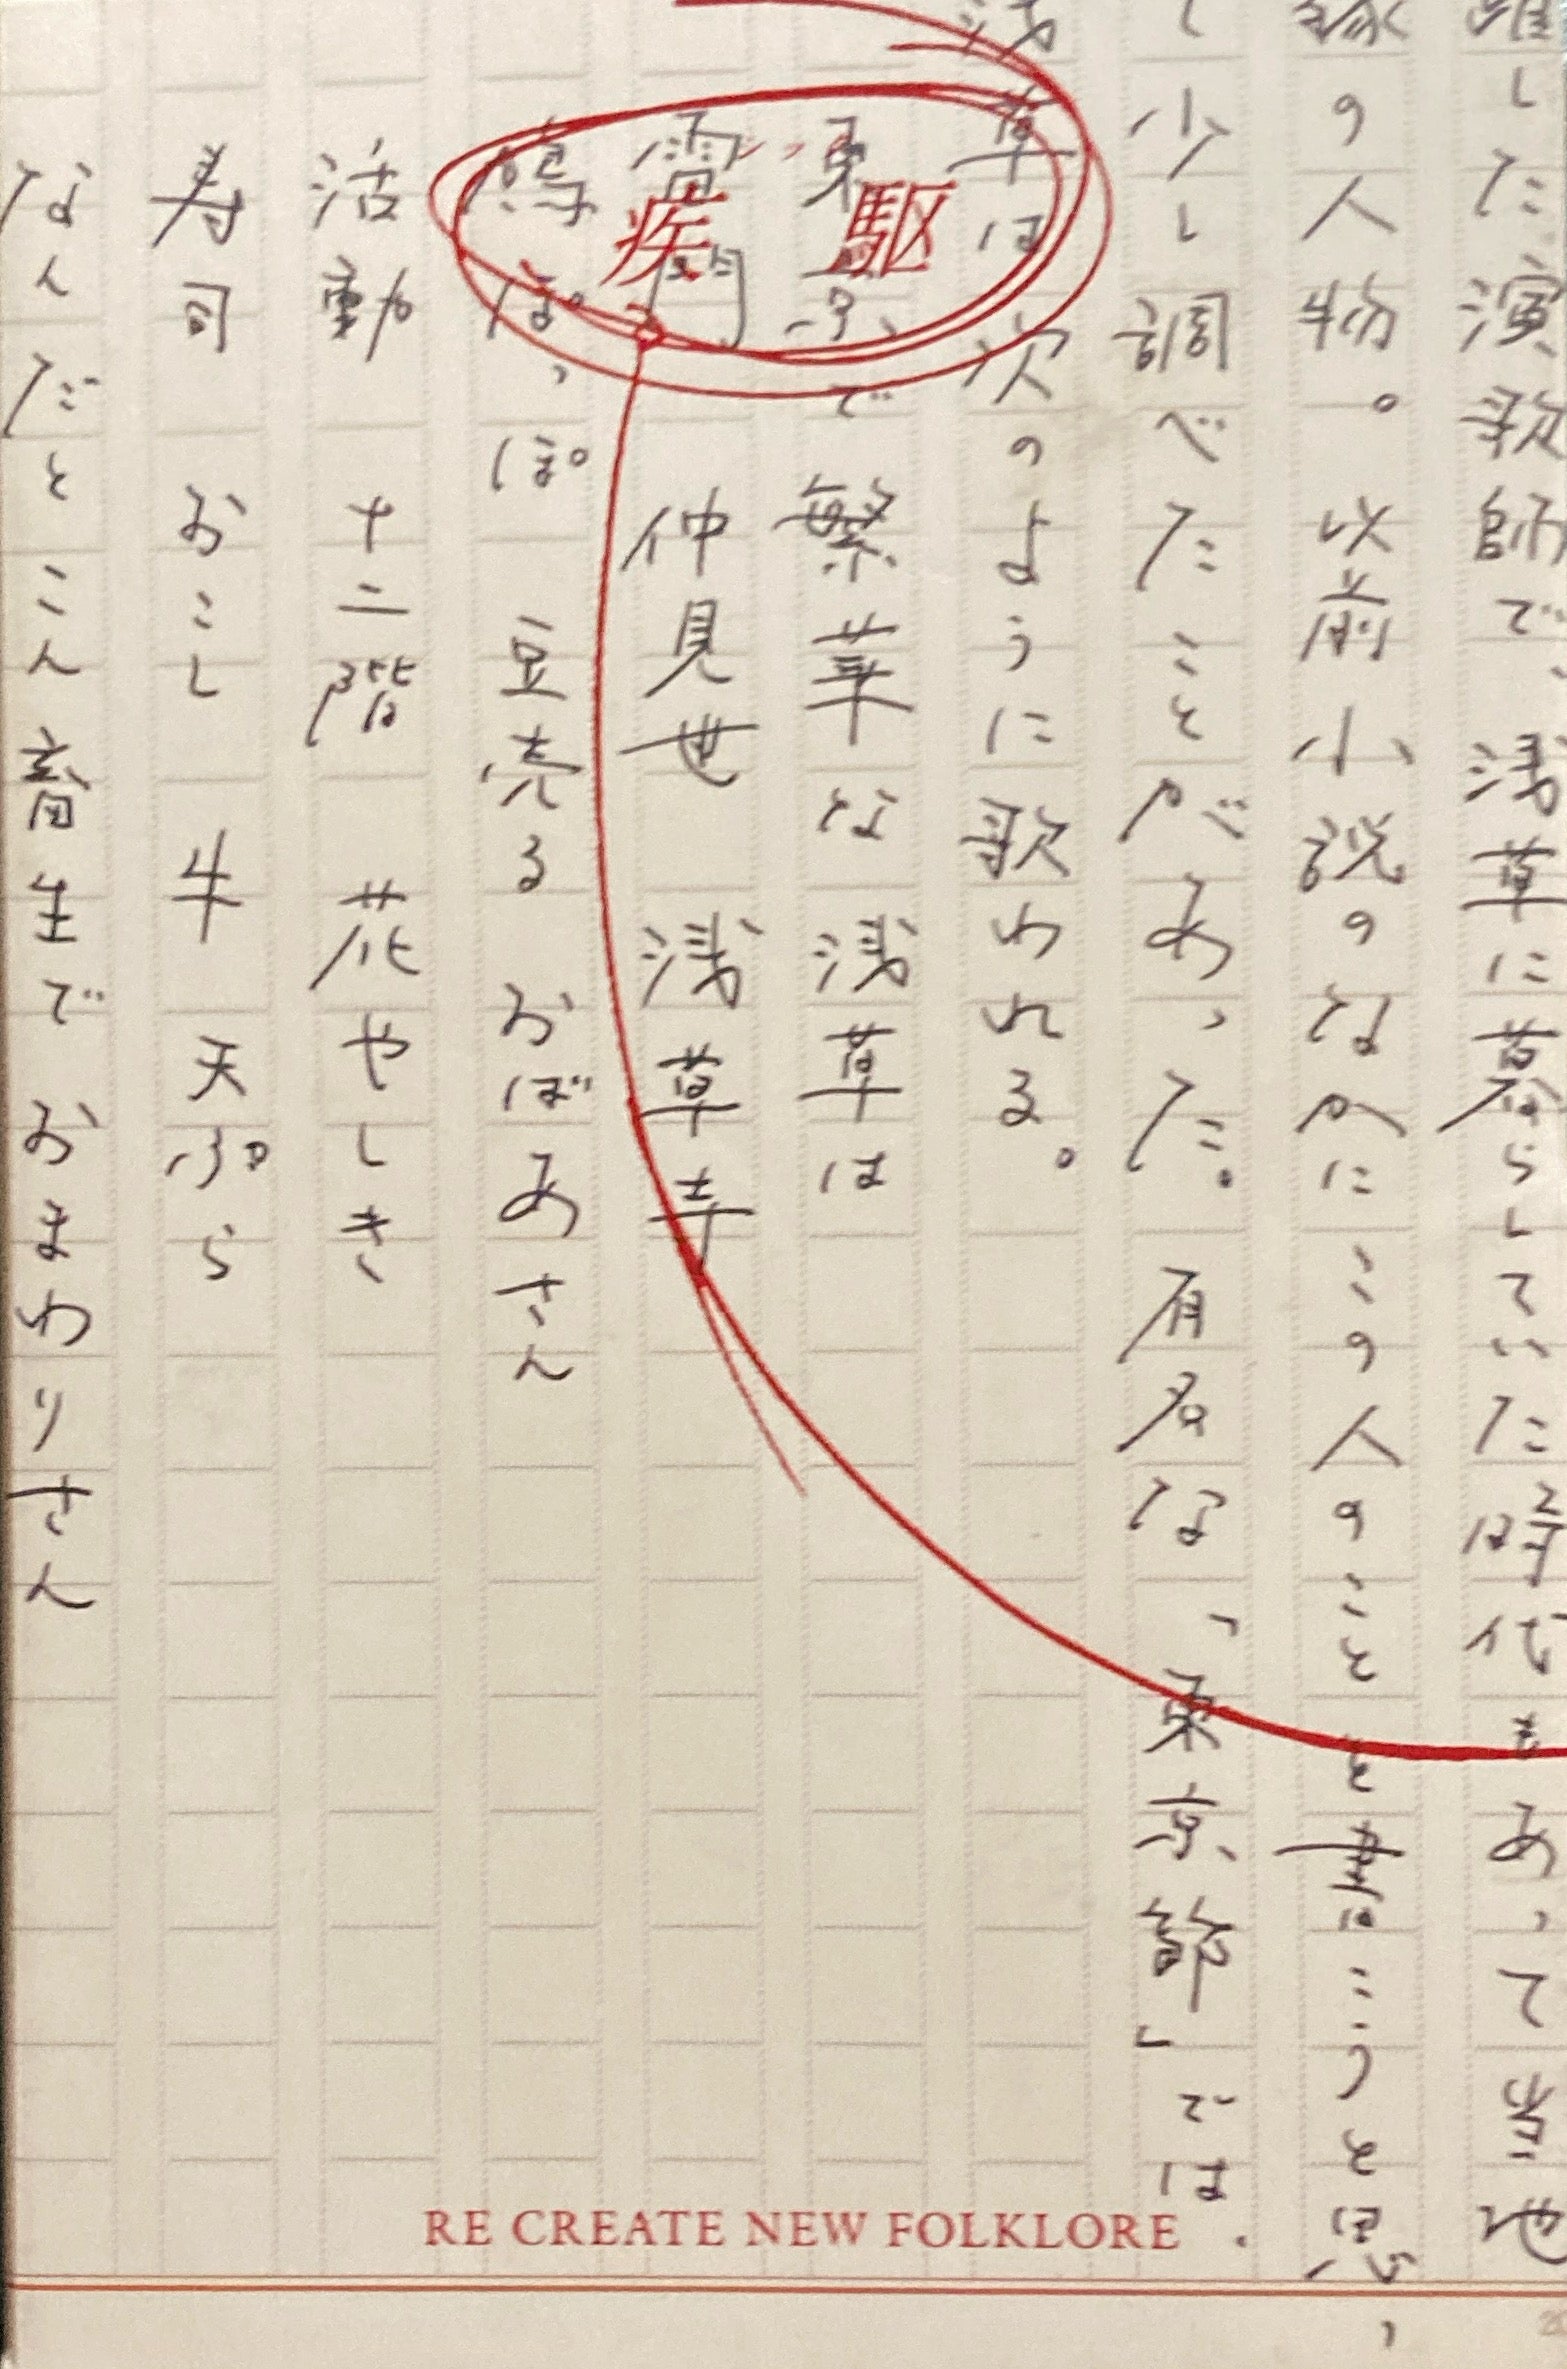 躍した演歌師で、浅草に暮らしていた時代もあって当地
縁の人物。以前小説のなかにこの人のことを書こうと思っ
て少し調べたことがあった。有名な「東京節」では、
浅草は次のように歌われる。
東京で繁華な浅草は
雷門 仲見世 浅草寺
鳩ぽっぽ 豆売るおばあさん
活動 十二階 花やしき
寿司 おこし 牛 天ぷら
なんだとこん畜生でおまわりさん
疾駆
RE CREATE NEW FOLKLORE